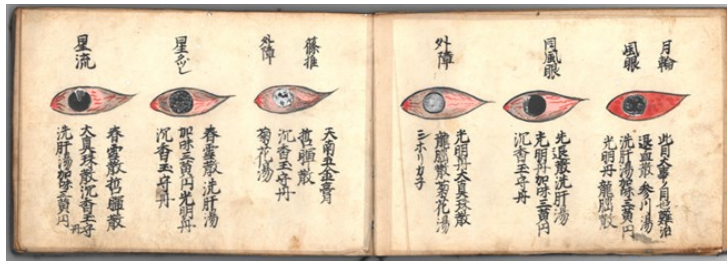 月輪
風眼
此目大事之目也難治
退血散 参川湯
洗肝湯加味三黄円
光明丹 龍脳散
同風眼
先退散洗肝湯
光明丹加味三黄円
沉香玉守丹
外障
光明丹大真珠散
龍脳散菊花湯
シホリカ子
藤推
外障
天南五大金膏丹
哲腫散
沉香玉守丹
菊花湯
星
春霊散洗肝湯
加味三黄円光明丹
沉香玉守丹
星流
春霊散哲腫散
大真珠散沉香玉守丹
洗肝湯加味三黄円